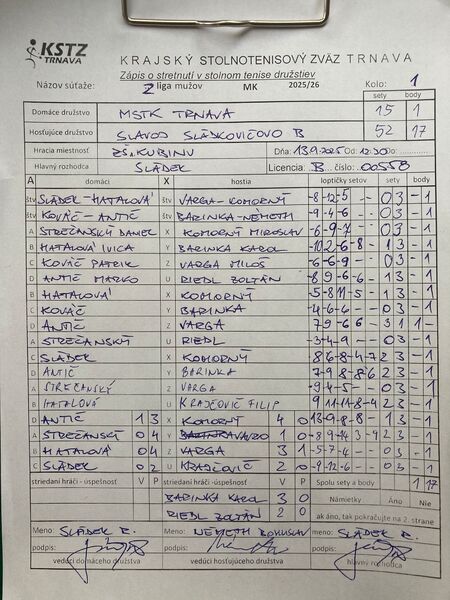 KSTZ
TRNAVA
KRAJSKÝ STOLNOTENISOVÝ ZVÄZ TRNAVA
Zápis o stretnutí v stolnom tenise družstiev
Názov súťaže: 2 liga mužov MK 2025/26 Kolo: 1
sety body
Domáce družstvo MSTK TRNAVA 15 1
Hosťujúce družstvo SLAVOJ SLÁDKOVIČOVO B 52 17
Hracia miestnosť ZŠ.KUBINU Dňa: 13.9.2025 Od 12.30
Hlavný rozhodca SLÁDEK Licencia: B číslo: 00558
A domáci X hostia loptičky setov sety body
štv SLÁDEK-HATALOVÁ štv VARGA-KOMORNÝ 03 -1
štv KOVÁČ-ANTIČ štv BARINKA-NEMETH -9-4-6 -03 -1
A STREČANSKÝ DANIEL X KOMORNÝ MIROSLAV -6-9-7 -03 -1
B HATALOVÁ IVICA Y BARINKA KAROL -10 2 -6 -8 -13 -1
C KOVÁČ PATRIK Z VARGA MILOŠ -6-6-9 -03 -1
D ANTIČ MARKO U RIEDL ZOLTÁN -8 9 -6 -6 -13 -1
B HATALOVÁ X KOMORNÝ -5 -8 11 -5 -13 -1
C KOVÁČ Y BARINKA -4-6-6 -03 -1
D ANTIČ Z VARGA 7 9 -6 6 -31 1-
A STREČANSKÝ U RIEDL -3-4-9 -03 -1
C SLÁDEK X KOMORNÝ -8 6 -8 4 -7 23 -1
D ANTIČ Y BARINKA 23 -1
A STREČANSKÝ Z VARGA -9-4-5 -03 -1
B HATALOVÁ U KRAJČOVIČ FILIP 9 11 -11 -8 -4 23 -1
D ANTIČ 1 3 X KOMORNÝ 4 0 -13 -1
A STREČANSKÝ 0 4 1 0 23 -1
B HATALOVÁ 0 4 Z VARGA 3 1 -5-7-4 -03 -1
C SLÁDEK 0 2 U KRAJČOVIČ 2 0 -9-12-6 -03 -1
striedaní hráči - úspešnosť V P striedaní hráči - úspešnosť V P Spolu sety a body 1 17
BARINKA KAROL 3 0 Námietky Áno Nie
RIEDL ZOLTÁN 2 0 ak áno, tak pokračujte na 2. strane
Meno: SLÁDEK R. Meno: NEMETH BOHUSLAV Meno: SLÁDEK R.
podpis: podpis: podpis:
vedúci domáceho družstva vedúci hosťujúceho družstva hlavný rozhodca